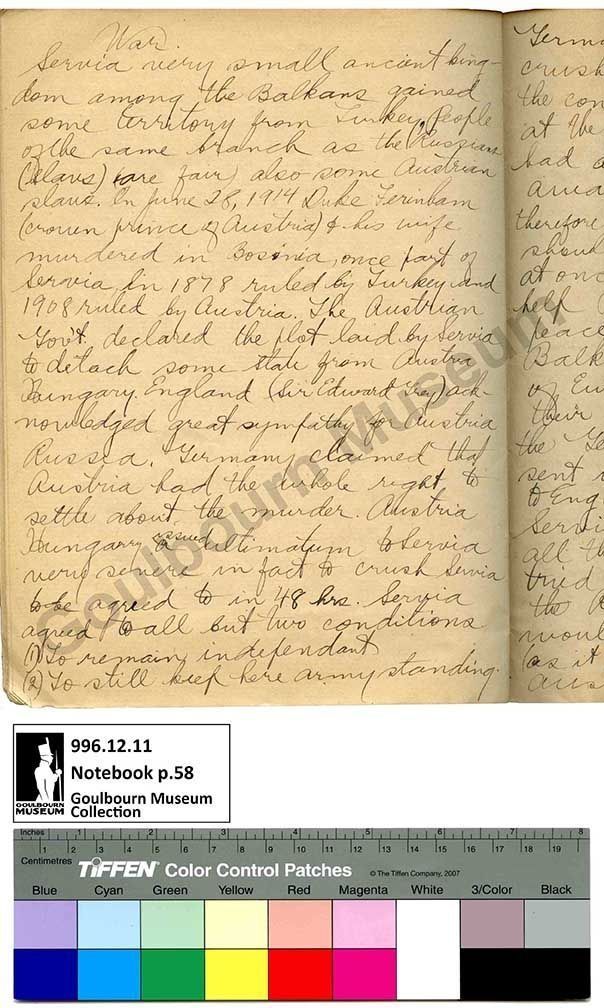 War.
Servia very small ancient king-
dom among the Balkans gained
some territory from Turkey, People
of the same branch as the Russian
(Slavs) (are fair) also some Austrian
slavs. On June 28, 1914 Duke
(crown prince of Austria) & his wife
murdered in Bosinia, once part of
Servia, in 1878 ruled by Turkey and
1908 ruled by Austria. The Austrian
Gov't. declared the plot laid by Servia
to detach some state from Austria
Hungary. England (Sir Edward Grey) ack-
nowledged great sympathy for Austria
Russia. Germany claimed that
Austria had the whole right to
settle about the murder. Austria
Hungarry issued a ultimatum to Servia
very severe in fact to crush Servia
to be agreed to in 48 hrs. Servia
agreed to all but two conditions
(1) To remain independant
(2) To still keep here army standing.
Germ
crush
the con
at the
had a
therefore
shoul
at onc
help
peace
Balk
of Eu
their
the Ge
sent
to Eng
Servi
all th
tried
the
woul
(as it
Aus
Goulbourn Museum
996.12.11
Notebook p.58
Goulbourn Museum
Collection
GOULBOURN
MUSEUM
Inches 1 2 3 4 5 6 7 8
Centimetres 1 2 3 4 5 6 7 8 9 10 11 12 13 14 15 16 17 18 19
TIFFEN Color Control Patches © The Tiffen Company, 2007
Blue Cyan Green Yellow Red Magenta White 3/Color Black